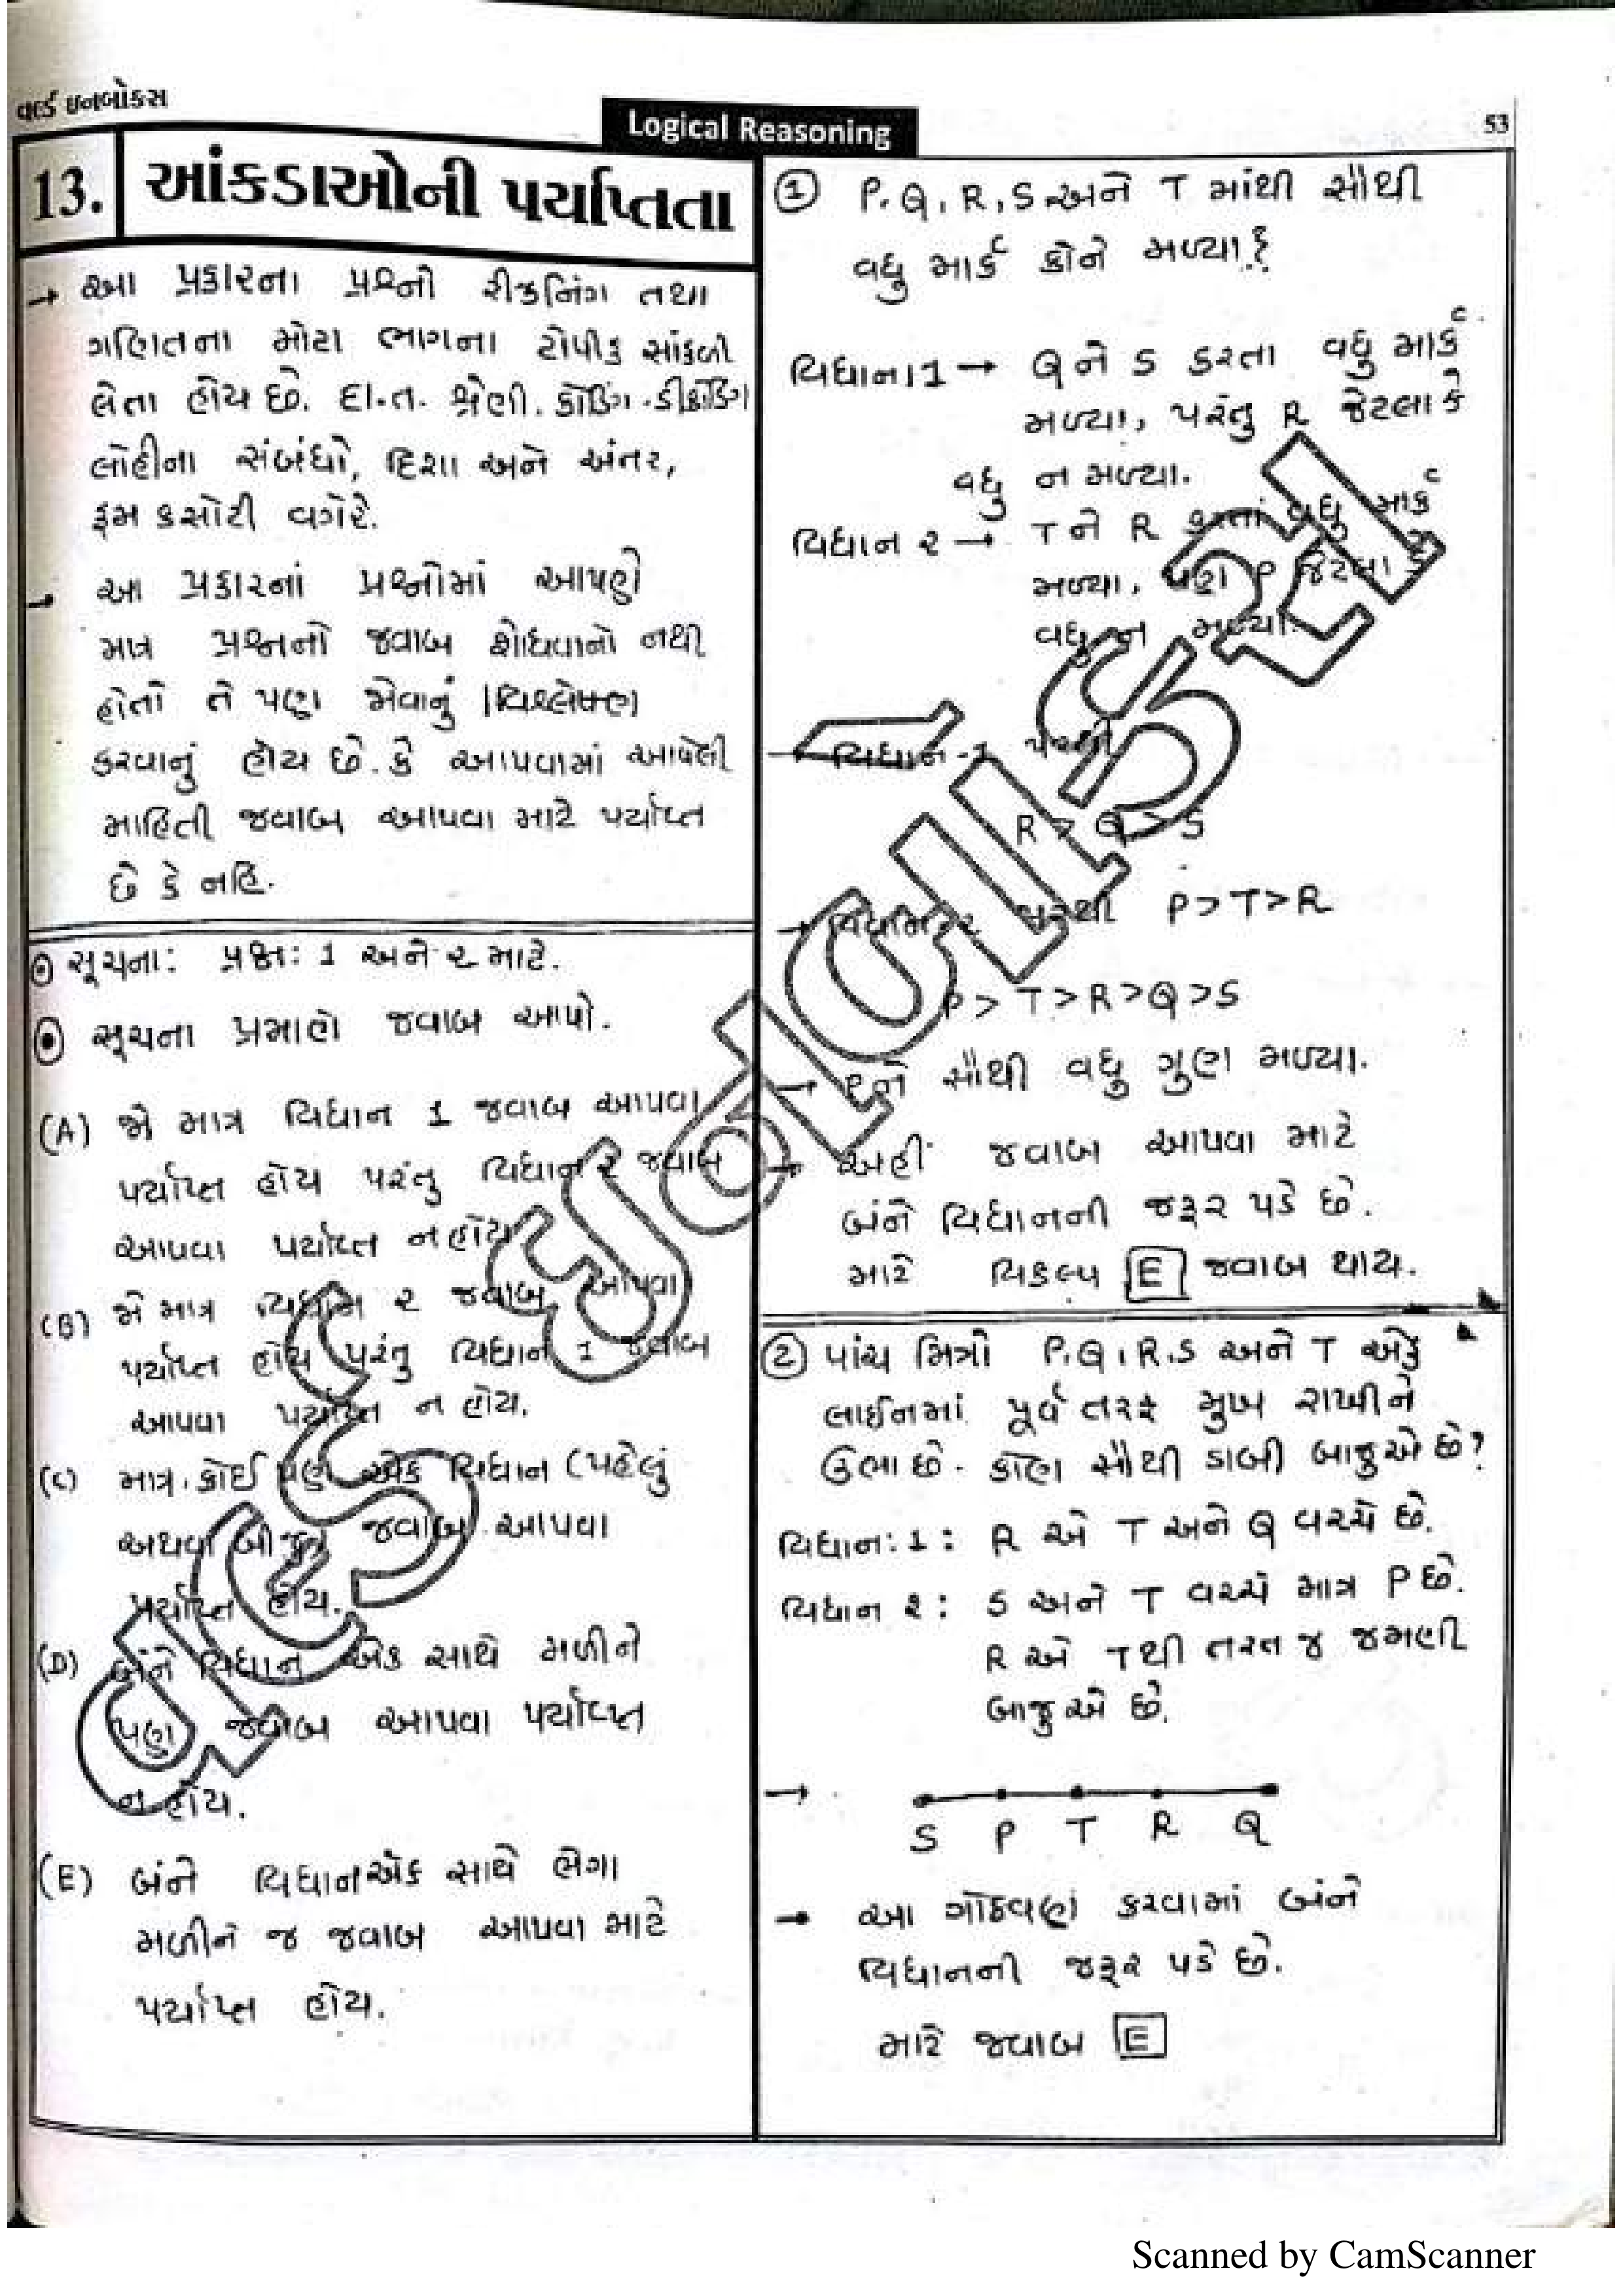 વર્લ્ડ ઇનબોક્સ
Logical Reasoning
53
13. આંકડાઓની પર્યાપ્તતા
→ આ પ્રકારના પ્રશ્નો રીઝનિંગ તથા
ગણિતના મોટા ભાગના ટોપીક સાંકળી
લેતા હોય છે. દા.ત. શ્રેણી. કોડિંગ-ડીકોડિંગ
લોહીના સંબંધો, દિશા અને અંતર,
ક્રમ કસોટી વગેરે.
→ આ પ્રકારનાં પ્રશ્નોમાં આપણે
માત્ર પ્રશ્નનો જવાબ શોધવાનો નથી
હોતો તે પણ જોવાનું વિશ્લેષણ
કરવાનું હોય છે. કે આપવામાં આપેલી
માહિતી જવાબ આપવા માટે પર્યાપ્ત
છે કે નહિ.
સૂચના: પ્રશ્ન: 1 અને ૨ માટે.
સૂચના પ્રમાણે જવાબ આપો.
(A) જો માત્ર વિધાન 1 જવાબ આપવા
પર્યાપ્ત હોય પરંતુ વિધાન ૨ જવાબ
આપવા પર્યાપ્ત ન હોય.
(B) જો માત્ર વિધાન ૨ જવાબ આપવા
પર્યાપ્ત હોય પરંતુ વિધાન 1 જવાબ
આપવા પર્યાપ્ત ન હોય.
(C) માત્ર કોઈ પણ એક વિધાન (પહેલું
અથવા બીજું) જવાબ આપવા
પર્યાપ્ત હોય.
(D) બંને વિધાન એક સાથે મળીને
પણ જવાબ આપવા પર્યાપ્ત
ન હોય.
(E) બંને વિધાન એક સાથે ભેગા
મળીને જ જવાબ આપવા માટે
પર્યાપ્ત હોય.
① P, Q, R, S અને T માંથી સૌથી
વધુ માર્ક કોને મળ્યા?
વિધાન 1 → Q ને S કરતા વધુ માર્ક
મળ્યા, પરંતુ R જેટલા કે
વધુ ન મળ્યા.
વિધાન ૨ → T ને R કરતાં વધુ માર્ક
મળ્યા, પણ P જેટલા કે
વધુ ન મળ્યા.
→ વિધાન-1 પરથી
R > Q > S
→ વિધાન ૨ પરથી P > T > R
P > T > R > Q > S
→ P ને સૌથી વધુ ગુણ મળ્યા.
→ અહીં જવાબ આપવા માટે
બંને વિધાનની જરૂર પડે છે.
માટે વિકલ્પ E જવાબ થાય.
② પાંચ મિત્રો P, Q, R, S અને T એક
લાઈનમાં પૂર્વ તરફ મુખ રાખીને
ઉભા છે. કોણ સૌથી ડાબી બાજુએ છે?
વિધાન: 1 : R એ T અને Q વચ્ચે છે.
વિધાન ૨ : S અને T વચ્ચે માત્ર P છે.
R એ T થી તરત જ જમણી
બાજુએ છે.
→
S P T R Q
→ આ ગોઠવણ કરવામાં બંને
વિધાનની જરૂર પડે છે.
માટે જવાબ E
Scanned by CamScanner